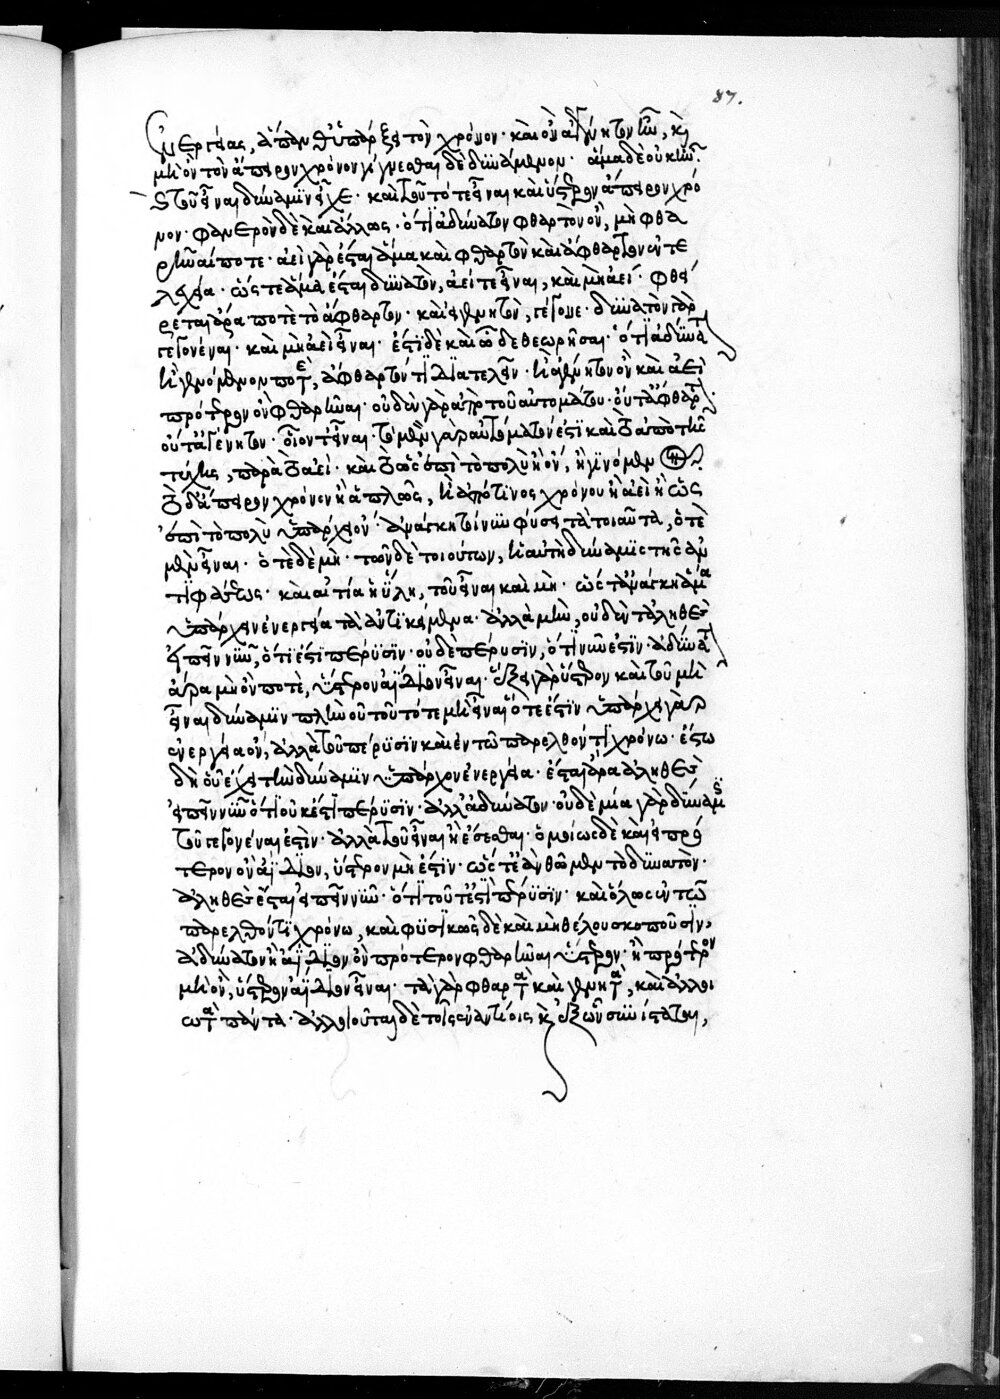 ἐνεργείας, ἅπανθ' ὑπάρξει τὸν χρόνον· καὶ ὂν ἀγένητον ἦν, καὶ
μὴ ὂν τὸν ἄπειρον χρόνον γίγνεσθαι δὲ δυνάμενον· ἅμα δὲ οὐκ ἦν
τοῦ εἶναι δύναμιν εἶχε· καὶ τοῦ τότε εἶναι καὶ ὕστερον ἄπειρον χρό
νον· φανερὸν δὲ καὶ ἄλλως· ὅτι ἀδύνατον φθαρτὸν ὂν, μὴ φθα
ρῆναί ποτε· ἀεὶ γὰρ ἔσται ἅμα καὶ φθαρτὸν καὶ ἄφθαρτον ἐντε
λεχεία· ὥς τε ἅμα ἔσται δυνατὸν, ἀεί τε εἶναι, καὶ μὴ ἀεί· φθεί
ρεται ἄρα ποτὲ τὸ ἄφθαρτον· καὶ εἰ γενητὸν, γέγονε· δυνατὸν γὰρ
γεγονέναι· καὶ μὴ ἀεὶ εἶναι· ἔστι δὲ καὶ ὧδε θεωρῆσαι· ὅτι ἀδύνατον
ἢ γενόμενον ποτὲ, ἄφθαρτόν τι διατελεῖν· ἢ ἀγένητον ὂν καὶ ἀεὶ
πρότερον ὂν φθαρῆναι· οὐδὲν γὰρ ἀπὸ τοῦ αὐτομάτου· οὔτ' ἄφθαρτον
οὔτ' ἀγένητον· οἷον τ' εἶναι· τὸ μὲν γὰρ αὐτόματόν ἐστι καὶ τὸ ἀπὸ τῆς
τύχης, παρὰ τὸ ἀεὶ· καὶ τὸ ὡς ἐπὶ τὸ πολὺ ἢ ὂν, ἢ γινόμενον
τὸ δ' ἄπειρον χρόνον ἢ ἁπλῶς, ἢ ἀπό τινος χρόνου ἢ ἀεὶ ἢ ὡς
ἐπὶ τὸ πολὺ ὑπάρχει ὂν· ἀνάγκη τοίνυν φύσει τὰ τοιαῦτα, ὁτὲ
μὲν εἶναι· ὁτὲ δὲ μή· τῶν δὲ τοιούτων, ἡ αὐτὴ δύναμις τῆς ἀν
τιφάσεως· καὶ αἰτία ἡ ὕλη, τοῦ εἶναι καὶ μὴ· ὥς τ' ἀνάγκη ἅμα
ὑπάρχειν ἐνεργεία τὰ ἀντικείμενα· ἀλλὰ μὴν, οὐδὲν τ' ἀληθὲς
εἰπεῖν νῦν, ὅτι ἐστὶ πέρυσιν· οὐδὲ πέρυσιν, ὅτι νῦν ἐστιν· ἀδύνατον
ἄρα μὴ ὄν ποτὲ, ὕστερον ἀΐδιον εἶναι· ἕξει γὰρ ὕστερον καὶ τοῦ μὴ
εἶναι δύναμιν πλὴν οὐ τοῦ τότε μὴ εἶναι ὅτε ἐστὶν ὑπάρχει γὰρ
ἐνεργεία ὂν, ἀλλὰ τοῦ πέρυσιν καὶ ἐν τῷ παρελθόντι χρόνω· ἔστω
δὴ οὗ εἶχε τὴν δύναμιν ὑπάρχον ἐνεργεία· ἔσται ἄρα ἀληθὲς
εἰπεῖν νῦν ὅτι οὐκ ἔστι πέρυσιν· ἀλλ' ἀδύνατον· οὐδὲ μία γὰρ δύναμις
τοῦ γεγονέναι ἐστὶν· ἀλλὰ τοῦ εἶναι ἢ ἔσεσθαι· ὁμοίως δὲ καὶ εἰ πρό
τερον ὂν ἀΐδιον, ὕστερον μὴ ἐστίν· ὥς τε ἂν θῶμεν τὸ δυνατὸν·
ἀληθὲς ἔσται εἰπεῖν νῦν· ὅτι τοῦτ' ἔστι πέρυσιν· καὶ ὅλως ἐν τῷ
παρελθόντι χρόνω, καὶ φυσικῶς δὲ καὶ μὴ θέλου σκοποῦσιν,
ἀδύνατον ἢ ἀΐδιον ὂν πρότερον φθαρῆναι ὕστερον· ἢ πρότερον
μὴ ὂν, ὕστερον ἀΐδιον εἶναι· τὰ γὰρ φθαρτὰ καὶ γενητὰ, καὶ ἀλλοι
ωτὰ πάντα· ἀλλοιοῦται δὲ τοῖς ἐναντίοις καὶ ἐξ ὧν συνίσταται,